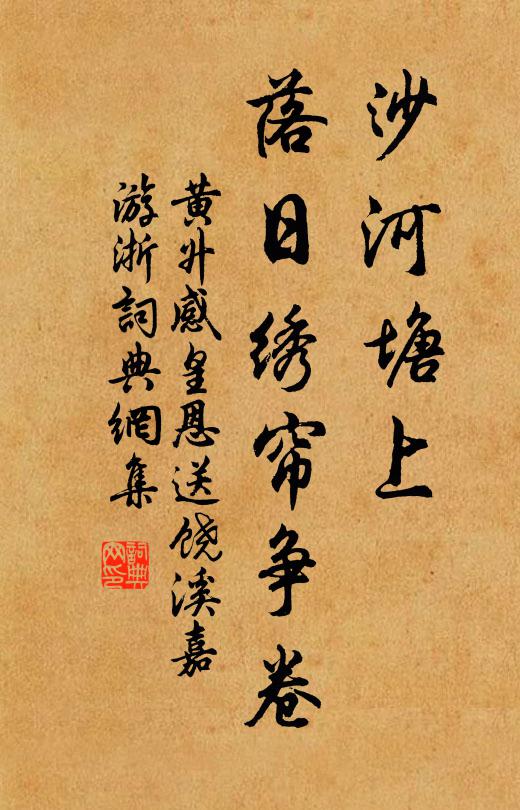 沙河塘上
落日绣帘争卷
黄升感皇恩送饶溪嘉
游浙詞典網集
詞典
网印